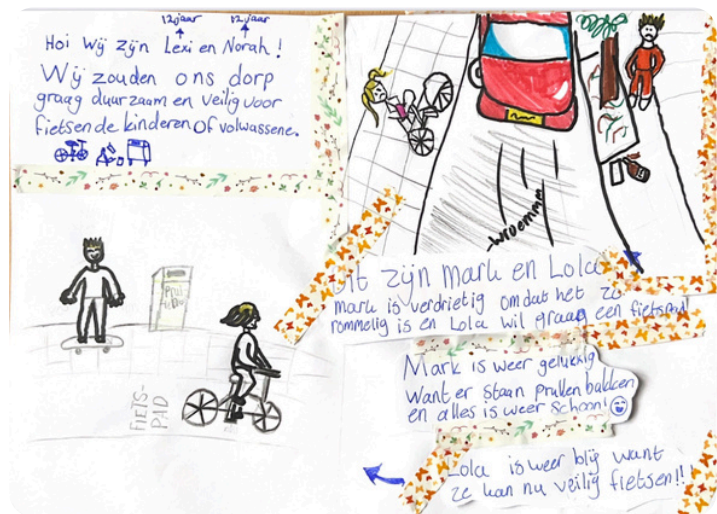 12jaar 12 jaar
Hoi Wij zijn Lexi en Norah!
Wij zouden ons dorp
graag duurzaam en veilig voor
fietsende kinderen of volwassene.
-wroemmm
Dit zijn Mark en Lola
mark is verdrietig omdat het zo
rommelig is en Lola wil graag een fietspad
Mark is weer gelukkig
Want er staan prullenbakken
en alles is weer schoon!
Lola is weer blij want
ze kan nu veilig fietsen!!
FIETS-
PAD